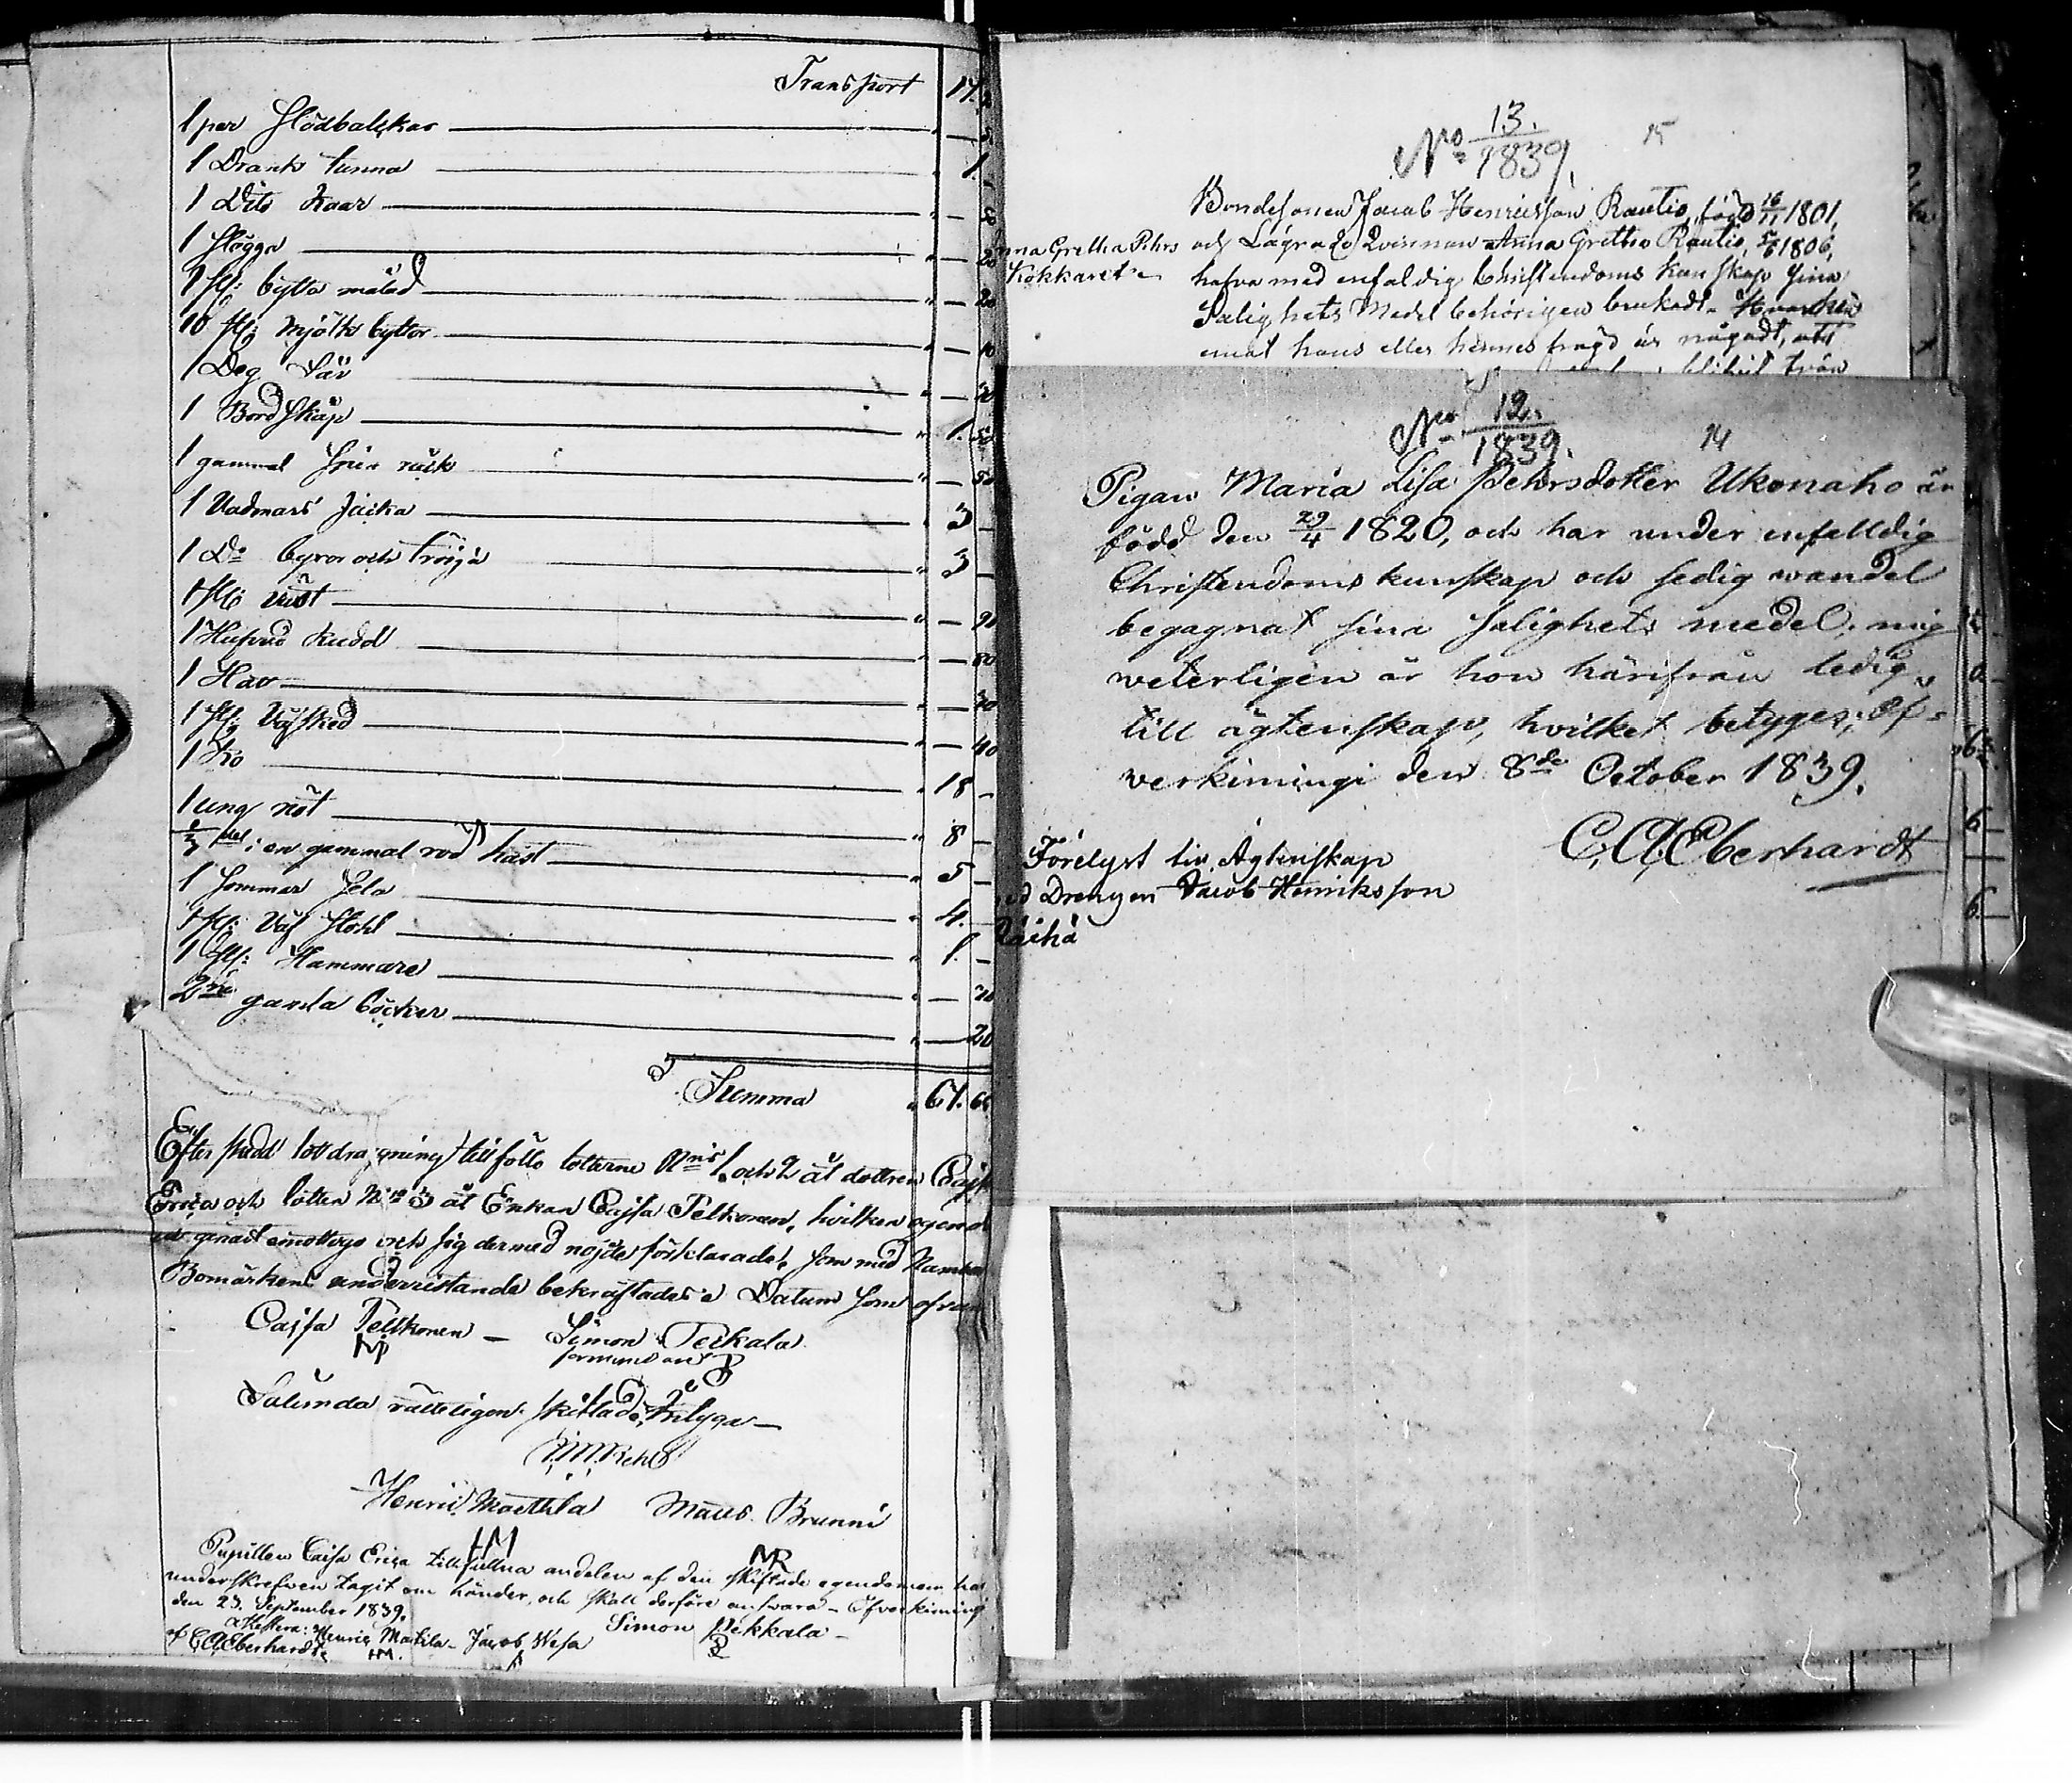 Transport 17.
1 par Slädbalckar — 5
1 Drank tunna 1. -
1 Dito kaar —
1 Slägga — 20
1 st: bytta målad — 20
10 st: Mjölks byttor — 10
1 Deg
1 Bord skåp 1. 50
1 gammal — 50
1 Vadmars Jacka 3 -
1 Do byxor och tröija 3 -
1 st: väst — 90
1 Hufvud kudd — 80
1
1 st: Väfsked — 40
1 Ko 18 -
1 ung nöt 8 -
del i en gammal röd häst 5 -
1 Sommar Sela 4. -
1 st: Väf stohl 1. -
1 st: Hammare — 20
2ne gamla böcker — 20
Summa 67. 6
Efter skedd lottdragning tillföllo lotterne Nris 1. och 2 åt dottren Cajsa
Erica och lotten No 3 åt Enkan Cajsa Pelkonen, hvilken egend
genast emottogs och sig dermed nöjde förklarade, som med Namn
Bomärkens underristande bekräftades. Datum som ofvan
Cajsa Pelkonen — Simon Peckala
förmyndare
Sålunda rätteligen skiftadt, betyga —
Henric Mattila Mats Brunni
HM MR
Pupillen Caisa Erica tillfallna andelen af den skiftade egendomen har
underskrefven tagit om händer, och skall derföre answara — Öfverkiming
den 23. September 1839. Simon Pekkala —
attestera: Henric Mattila — Jacob Wesa
af C A Eberhardt. HM.
No 13./1839. 15
Bondesonen Jacob Henricsson Rautio, född 16/11 1801,
och Lägrade Qvinnan Anna Gretha Rautio, 5/6 1806,
hafva med enfaldig Christendoms kunskap sina
Salighets Medel behörigen brukadt. Hvarken
emot hans eller hennes frägd är någodt, att
Anna Gretha Pehrs
Kokkarit
No 12./1839. 14
Pigan Maria Lisa Pehrsdotter Ukonaho är
född den 29/4 1820, och har under enfalldig
Christendoms kunskap och sedig wandel
begagnat sina salighets medel; mig
weterligen är hon härifrån ledig
till ägtenskap, hvilket betyges; Öf=
verkimingi den 8de October 1839.
C. A. Eberhardt
Förelyst till Ägtenskap
med Drengen Jacob Henriksson
Räihä